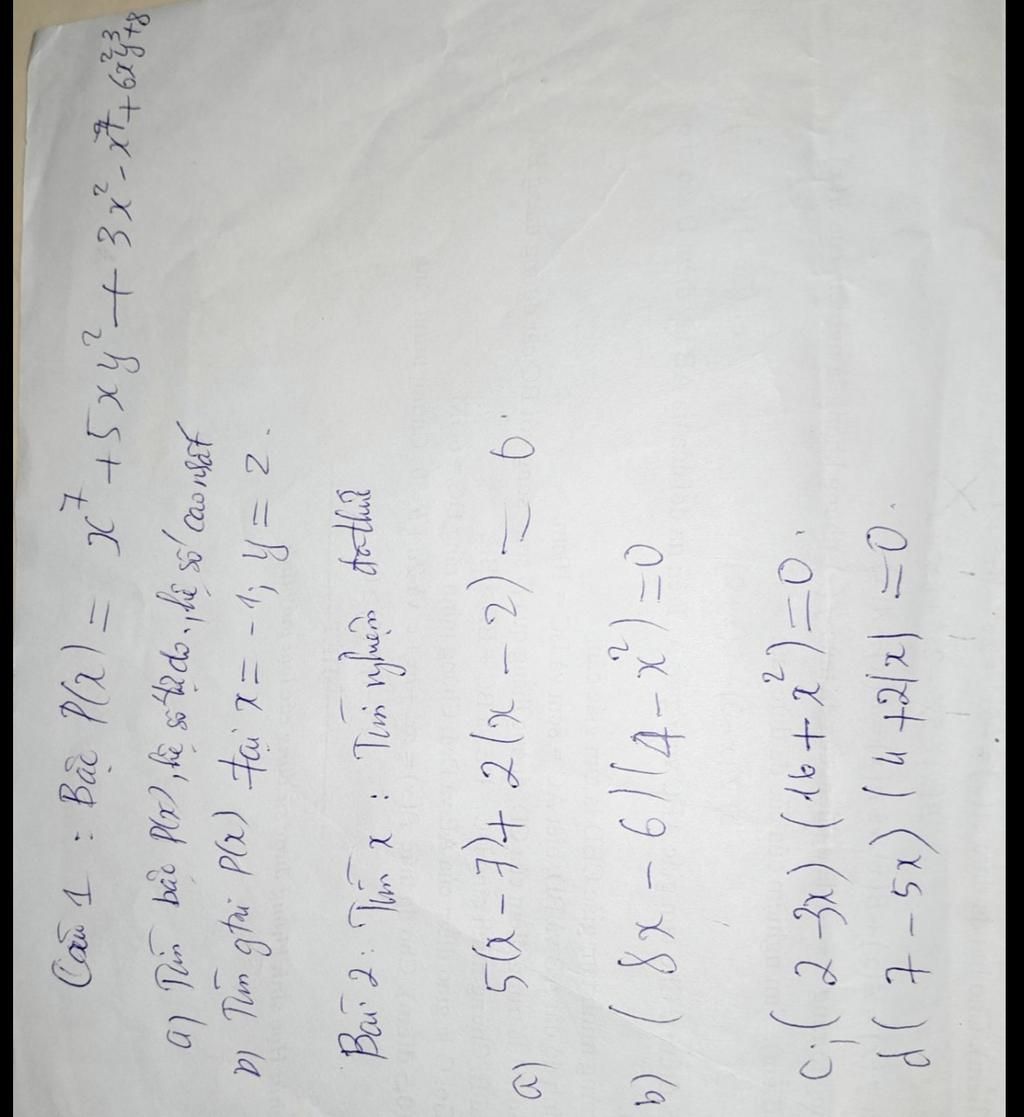 Câu 1 : Bậc P(x) = x⁷ + 5xy² + 3x² - x⁷ + 6x²y³ + 8
a) Tìm bậc P(x), hệ số tự do, hệ số cao nhất
b) Tìm gtri P(x) tại x = -1; y = 2.
Bài 2: Tìm x : Tìm nghiệm đa thức
a) 5(x - 7) + 2(x - 2) = 0.
b) (8x - 6)(4 - x²) = 0
c; (2 - 3x) (16 + x²) = 0.
d (7 - 5x) (4 + 2|x| = 0.